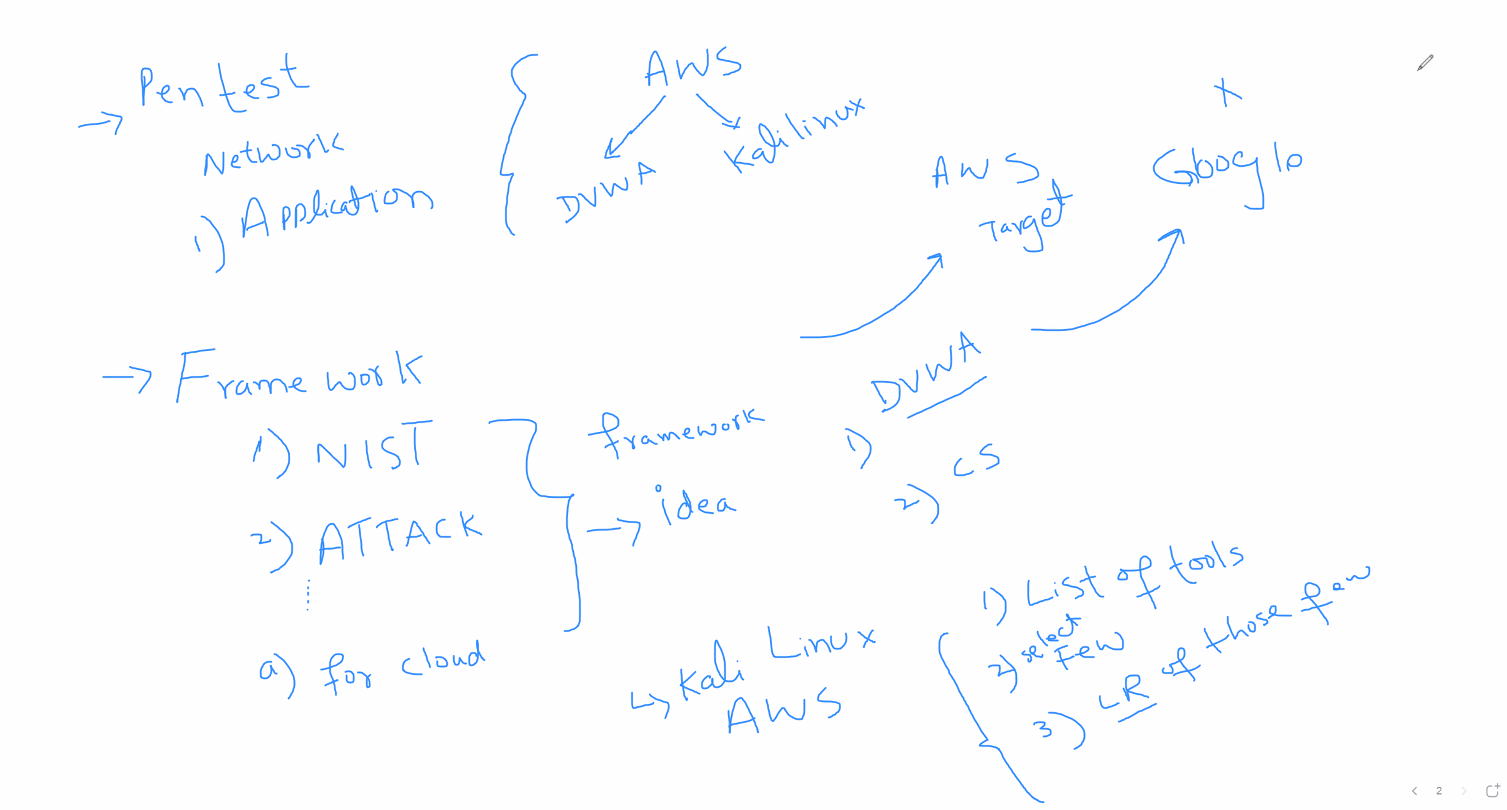 → Pentest
Network
1) Application
AWS
DVWA
Kali linux
AWS
Target
x
Google
→ Frame work
1) NIST
2) ATTACK
a) for cloud
framework
→ idea
DVWA
1)
2) CS
↳ Kali Linux
AWS
1) List of tools
2) select Few
3) LR of those few
2